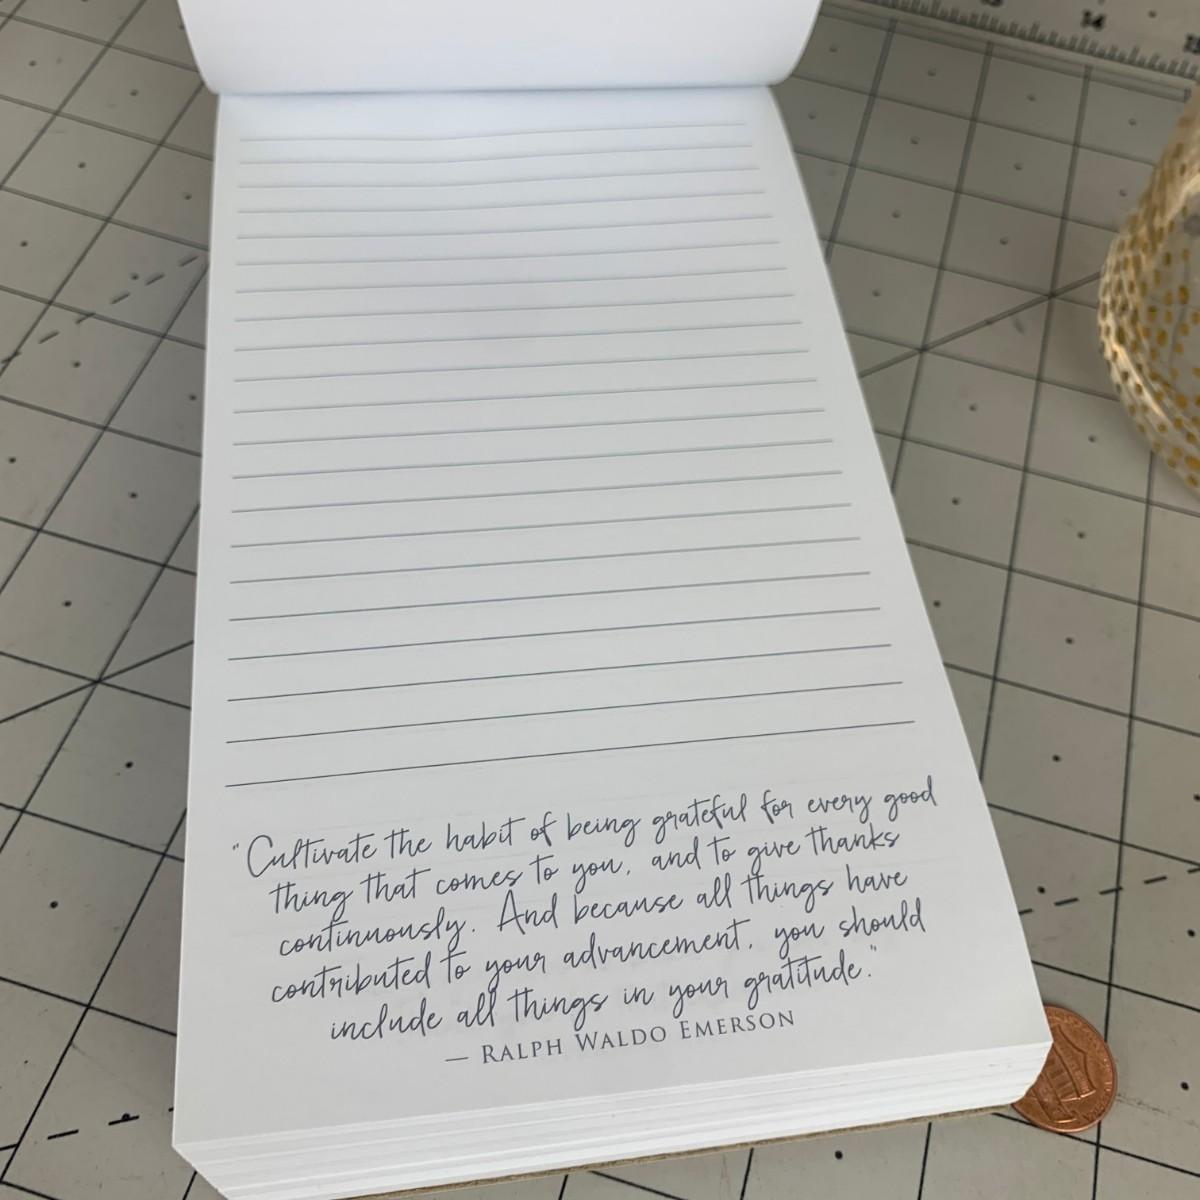 14
"Cultivate the habit of being grateful for every good
thing that comes to you, and to give thanks
continuously. And because all things have
contributed to your advancement, you should
include all things in your gratitude."
— RALPH WALDO EMERSON